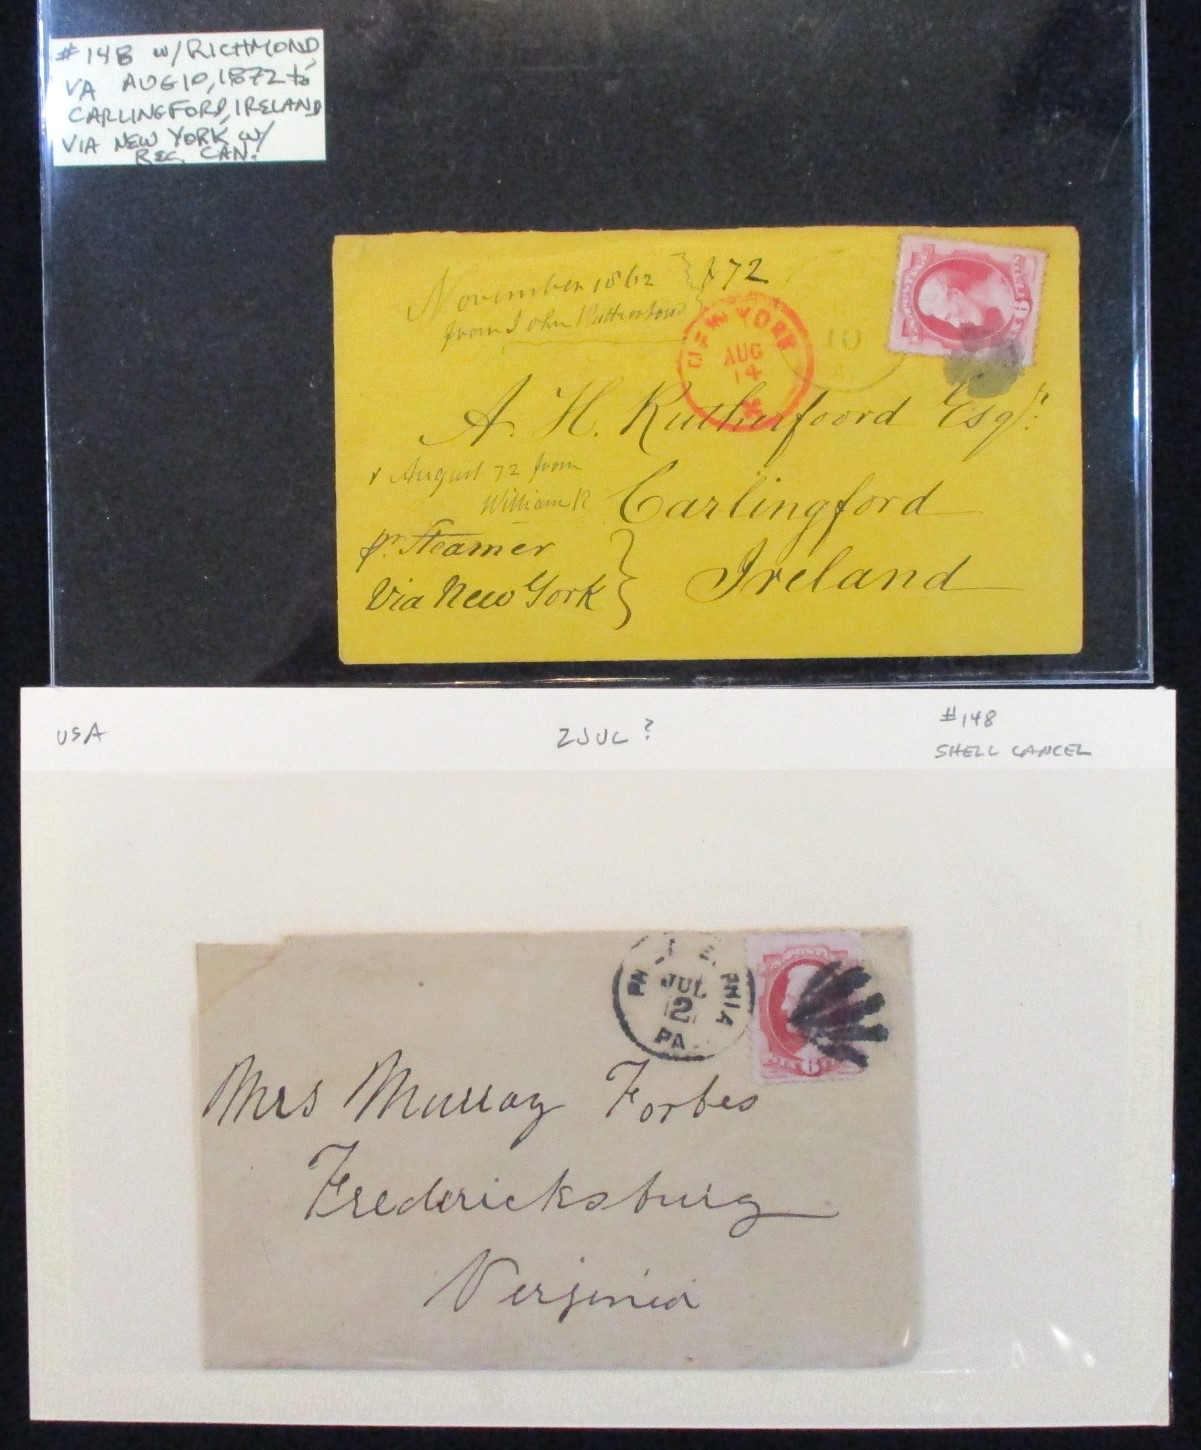 #148 W/RICHMOND,
VA AUG 10, 1872 to
CARLINGFORD, IRELAND
VIA NEW YORK W/
REG. CAN.
November 1862 } & 72
from John Rutherfoord
NEW YORK
AUG
14
10
A. H. Rutherfoord Esqr.
& August 72 from
William R
Carlingford
pr. Steamer
Ireland
Via New York
USA 2JUL? #148
SHELL CANCEL
JUL
2
PA
6
Mrs Murray Forbes
Fredericksburg
Virginia